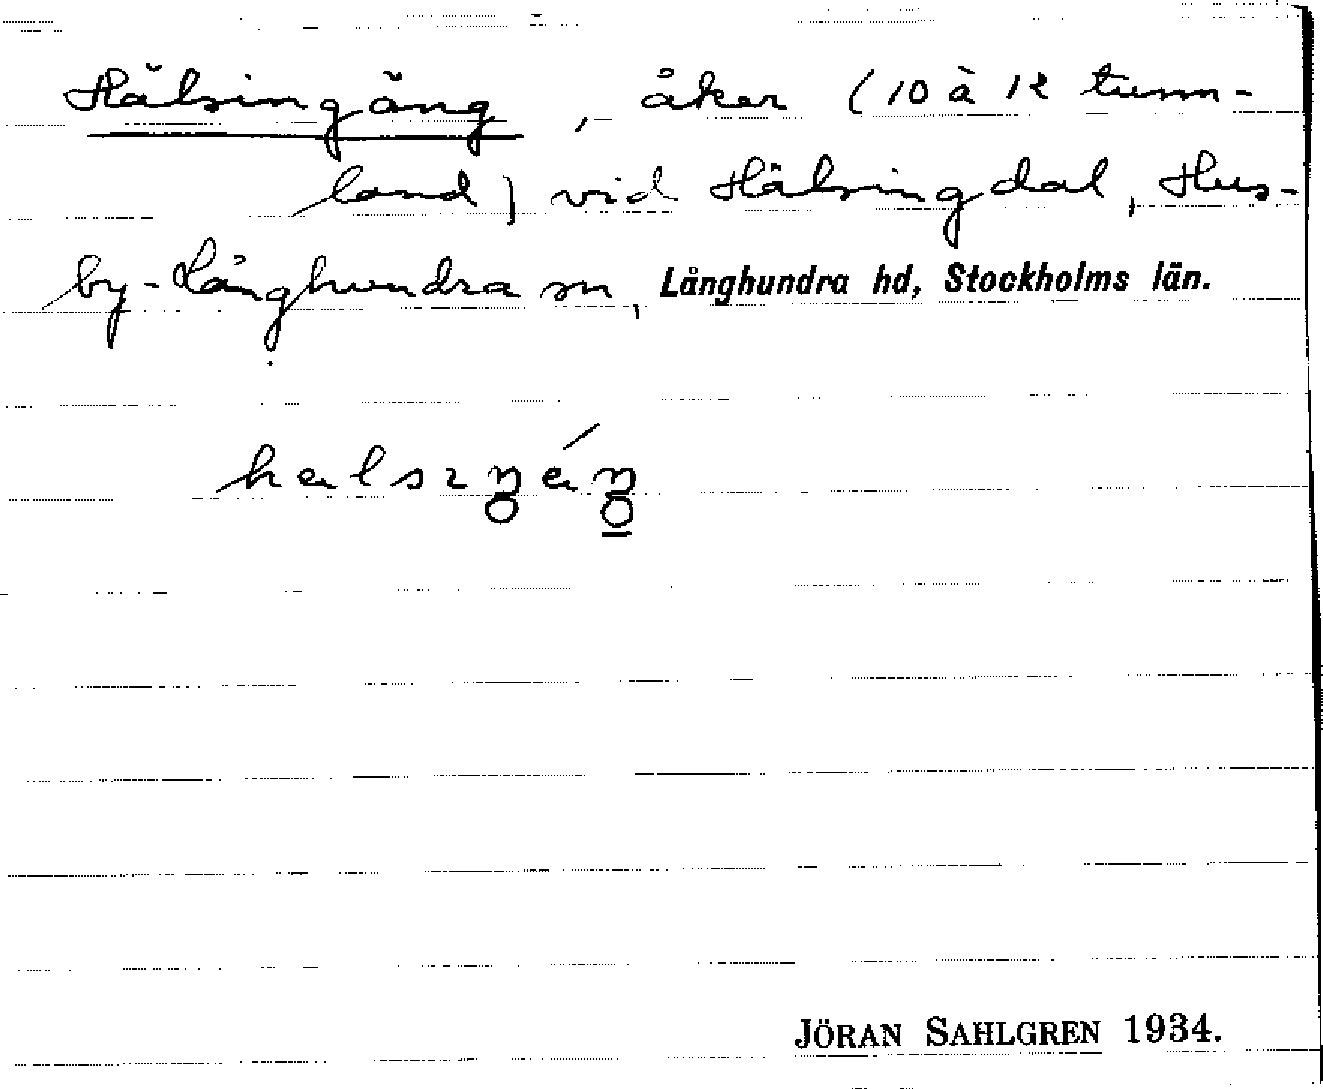 Hälsingäng, åker (10 à 12 tunn-
land) vid Hälsingdal, Hus-
by-Långhundra sn, Långhundra hd, Stockholms län.
JÖRAN SAHLGREN 1934.